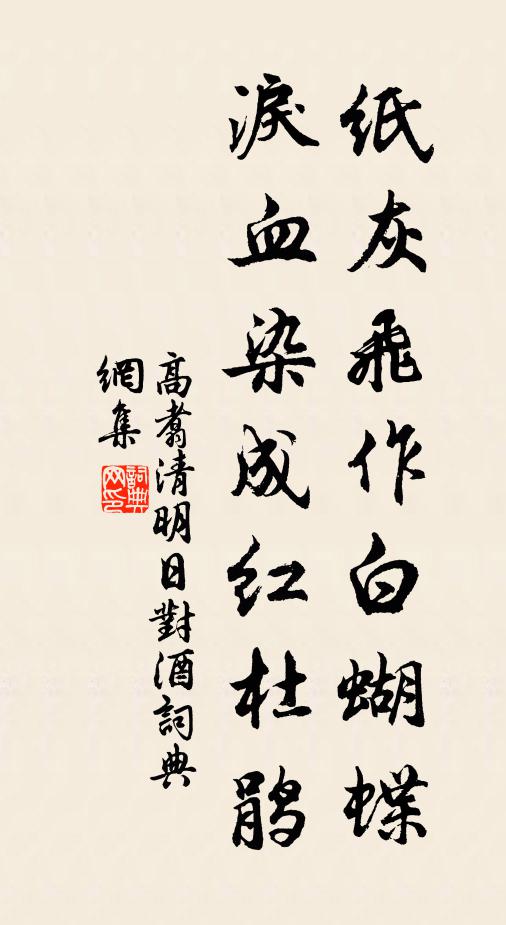 纸灰飛作白蝴蝶
淚血染成红杜鹃
高翥清明日對酒詞典
網集
詞典
网印